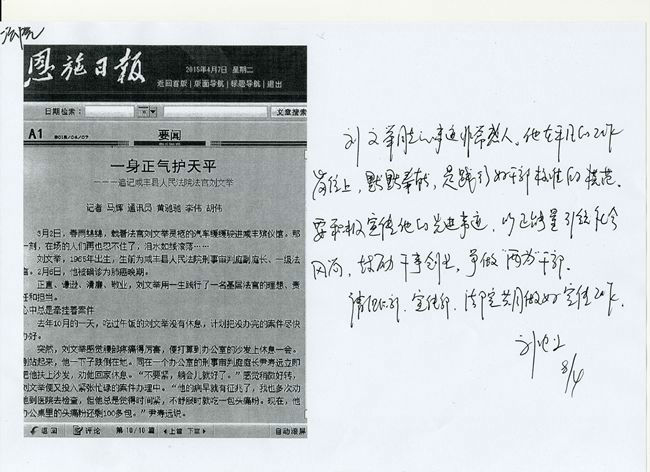 法院
恩施日报
2015年4月7日 星期二
返回首版 | 版面导航 | 标题导航 | 退出
日期检索：
文章搜索
A1 2015/04/07
要闻
一身正气护天平
———追记咸丰县人民法院法官刘文举
记者 马辉 通讯员 黄驰驰 李伟 胡伟
3月2日，春雨绵绵，载着法官刘文举灵柩的汽车缓缓驶进咸丰殡仪馆，那
一刻，在场的人们再也忍不住了，泪水如线滚落……
刘文举，1965年出生，生前为咸丰县人民法院刑事审判庭副庭长、一级法
官。2月6日，他被确诊为肺癌晚期。
正直、谦逊、清廉、敬业，刘文举用一生践行了一名基层法官的理想、责
任和担当。
心中总是牵挂着案件
去年10月的一天，吃过午饭的刘文举没有休息，计划把没办完的案件尽快
办好。
突然，刘文举感觉腰部疼痛得厉害，便打算到办公室的沙发上休息一会。
刚站起来，他一下子跌倒在地。同在一个办公室的刑事审判庭庭长尹寿远立即
把他扶上沙发，劝他回家休息。“不要紧，躺会儿就好了。”感觉稍微好转，
刘文举便又投入紧张忙碌的案件办理中。“他的病早就有征兆了，我也多次劝
他到医院去检查，但他总是觉得时间紧，不舒服时就吃一包头痛粉。现在，他
办公桌里的头痛粉还剩100多包。”尹寿远说。
返回 评论 第10/10篇 上篇 下篇 自动滚屏
刘文举同志的事迹非常感人。他在平凡的工作
岗位上，默默奉献，是践行好干部标准的模范。
要积极宣传他的先进事迹，以正能量引领社会
风尚，鼓励干事创业，争做“两为”干部。
请组织部、宣传部、法院共同做好宣传工作。
8/4